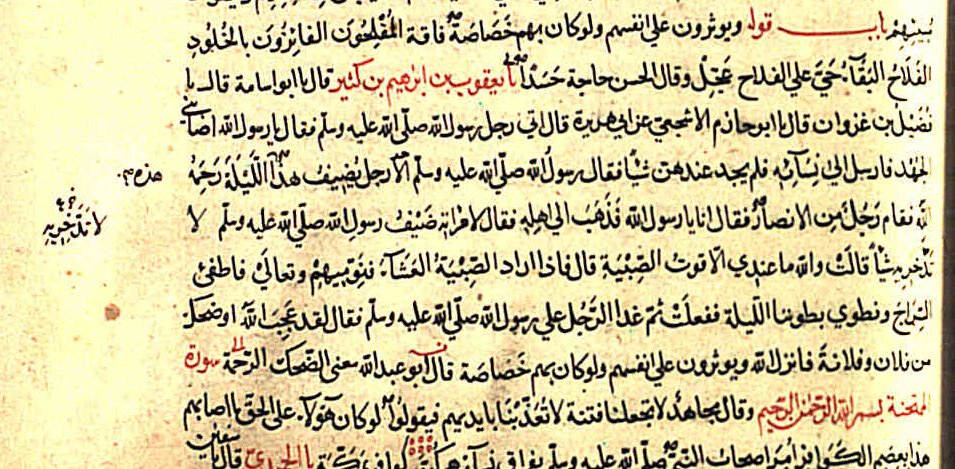 بينهم باب قوله ويوثرون علي انفسهم ولو كان بهم خَصَاصَة فاقة المُفْلِحُون الفائِزُون بالخُلُودِ
الفَلَاحُ البَقَآءُ حَيَّ علي الفلاح عَجِّلْ وقال الحسن حاجة حَسَدًا نا يعقوب بن ابرهيم بن كثير قال نا ابو اسامة قال نا
فُضَيْل بن غزوان قال نا ابو حازم الاشجعي عن ابي هريرة قال اتي رجل رسولَ الله صلّي الله عليه وسلّم فقال يا رسول الله اصابني
الجَهْد فارسل الي نسآئه فلم يجد عندهنّ شيًا فقال رسول الله صلّي الله عليه وسلّم ألا رجل يُضِيفُ هذا اللَّيْلَةَ رَحِمَهُ
هذه
اللّه فقام رَجُلٌ مِن الانصار فقال انا يا رسول الله فَذَهَبَ الي اهلِه فقال لامرأته ضَيْفُ رسولِ الله صلّي الله عليه وسلّم لا
لا تدّخريه
تدّخريه شيأً قالَتْ والله ما عندي الّا قوتُ الصِّبْيَةِ قال فاذا اراد الصِّبْيَةُ العَشَآءَ فنوِّمِيهِمْ وتعالَيْ فاطفئي
السِّرَاجَ ونطوي بطوننا اللّيلة ففعلَتْ ثم غدا الرَّجُل علي رسول الله صلّي الله عليه وسلّم فقال لقد عَجِبَ اللهُ او ضحك
من فلان وفلانةَ فانزل الله ويوثرون علي انفسهم ولو كان بهم خَصَاصَة قال ابو عبد الله معني الضّحك الرّحمة سورة
الممتحنة بسم الله الرّحمن الرّحيم وقال مجاهد لا تجعلنا فتنة لا تُعَذِّبْنَا بايديهم فيقولُوا لو كان هؤلآء علي الحقّ ما اصابهم
هذا بعصم الكوافر أُمِرَ اصحاب النّبيّ صلّي الله عليه وسلّم بفراق نسآئهم كُنّ كوافر بمكّة نا الحميديّ قال نا سفين